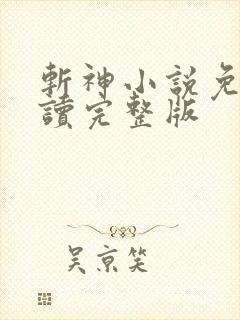 斬神小説免
讀完整版
吴京笑